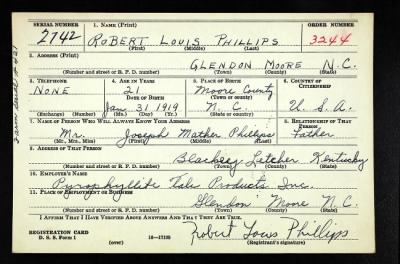 SERIAL NUMBER 1. NAME (Print) ORDER NUMBER
2742 ROBERT LOUIS PHILLIPS 3244
(First) (Middle) (Last)
2. ADDRESS (Print)
GLENDON MOORE N.C.
(Number and street or R. F. D. number) (Town) (County) (State)
3. TELEPHONE 4. AGE IN YEARS 5. PLACE OF BIRTH 6. COUNTRY OF CITIZENSHIP
NONE 21 Moore County
DATE OF BIRTH
Jan. 31 1919 N. C. U. S. A.
(Exchange) (Number) (Mo.) (Day) (Yr.) (State or country)
7. NAME OF PERSON WHO WILL ALWAYS KNOW YOUR ADDRESS 8. RELATIONSHIP OF THAT PERSON
Mr. Joseph Mather Phillips Father
(Mr., Mrs., Miss) (First) (Middle) (Last)
9. ADDRESS OF THAT PERSON
Blackey Letcher Kentucky
(Number and street or R. F. D. number) (Town) (County) (State)
10. EMPLOYER'S NAME
Pyrophyllite Talc Products, Inc.
11. PLACE OF EMPLOYMENT OR BUSINESS
Glendon Moore N.C.
(Number and street or R. F. D. number) (Town) (County) (State)
I AFFIRM THAT I HAVE VERIFIED ABOVE ANSWERS AND THAT THEY ARE TRUE.
REGISTRATION CARD
D. S. S. Form 1 (over) 16—17105
Robert Louis Phillips
(Registrant's signature)